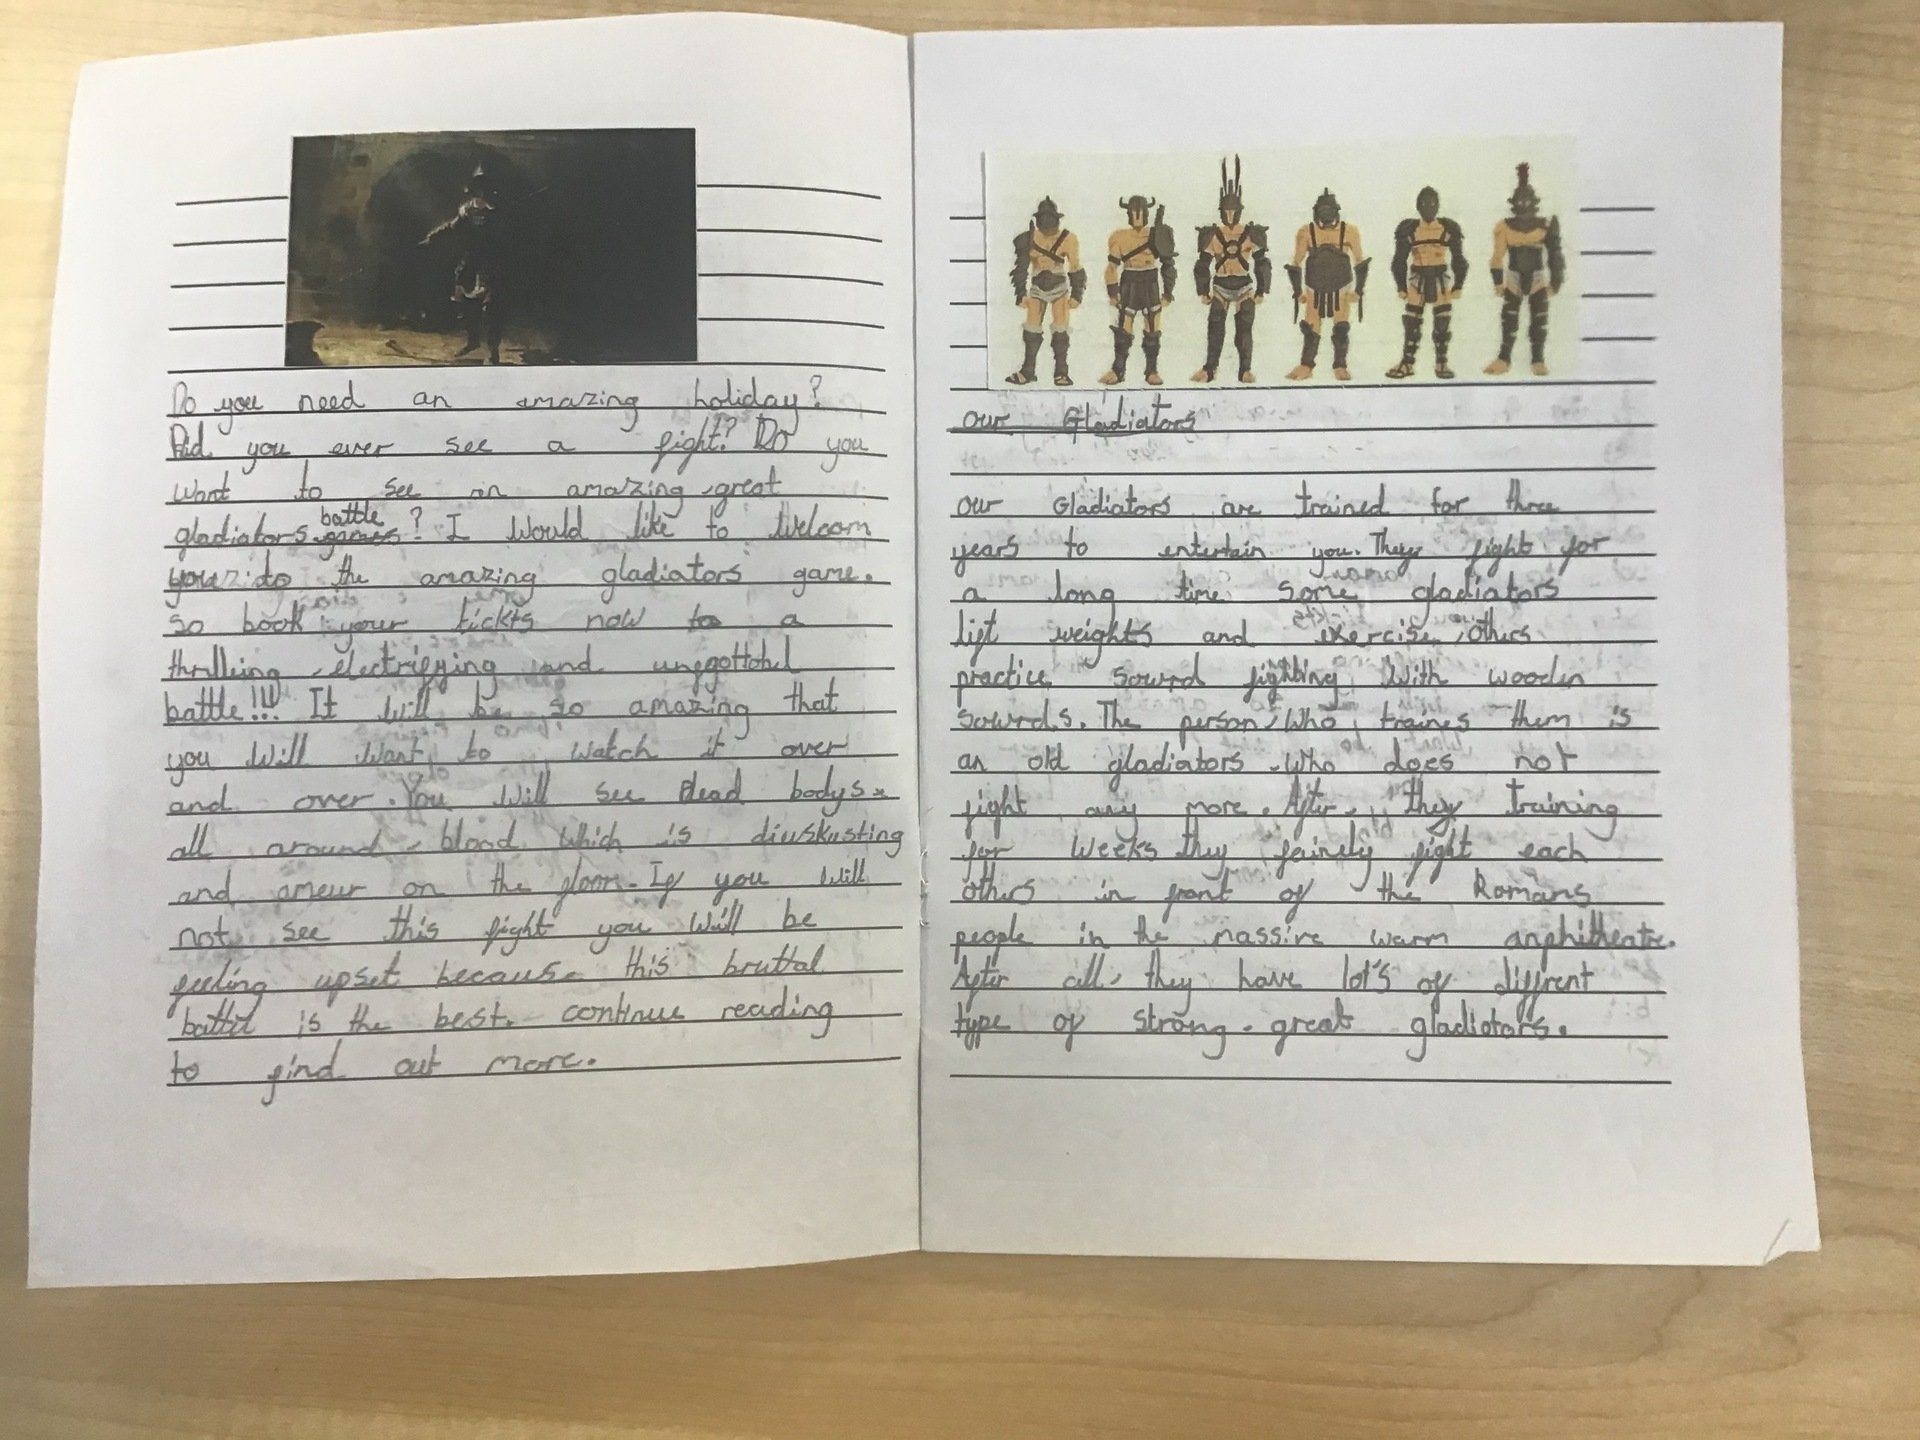 Do you need an amazing holiday?
Did you ever see a fight? Do you
want to see an amazing, great
gladiators battle ? I would like to welcom
you to the amazing gladiators game.
So book your tickts now to a
thrilleing, electrifying and unfgottohul
battle!!! It will be so amazing that
you will want to watch it over
and over. You will see dead bodys
all around, blood which is diuskusting
and ameur on the floor. If you will
not see this fight you will be
feeling upset because this bruttal
battle is the best. continue reading
to find out more.
Our Gladiators
Our Gladiators are trained for three
years to entertain you. They fight for
a long time some gladiators
lift weights and exercise, others
practice sowrd fighting with wooden
sowrds. The person, who traines them is
an old gladiators, who does not
fight any more. After, they training
for weeks they fairely fight each
others in front of the Romans
people in the massive warm amphitheatre.
After all, they have lot's of diffrent
type of strong, great gladiators.